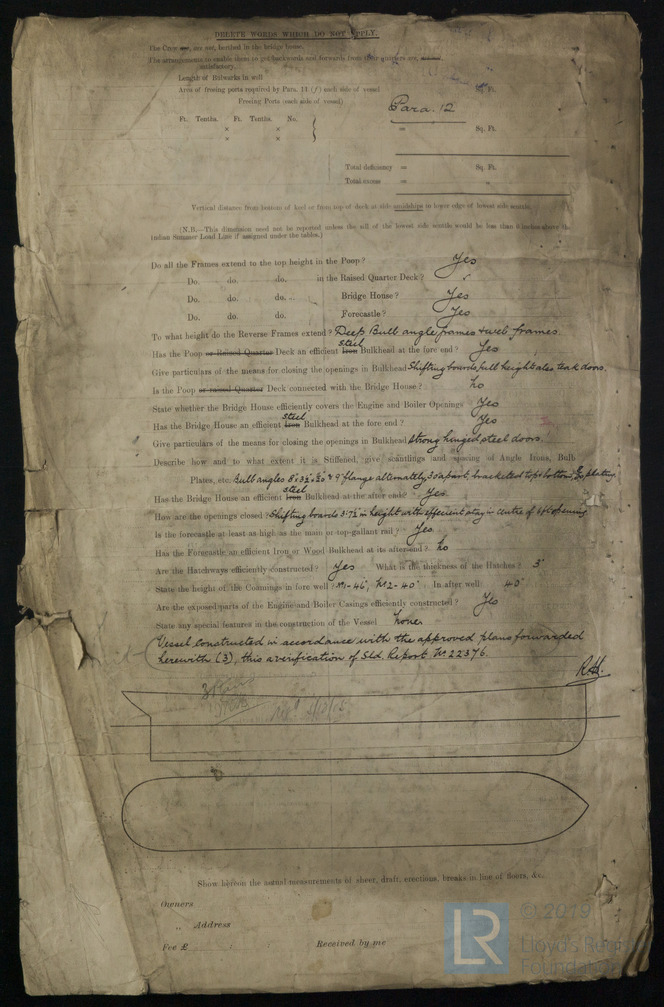 DELETE WORDS WHICH DO NOT APPLY.
The Crew are, are not, berthed in the bridge house.
The arrangements to enable them to get backwards and forwards from their quarters are,
satisfactory.
Length of Bulwarks in well
Area of freeing ports required by Para. 11 (f) each side of vessel Ft.
Freeing Ports (each side of vessel) Para. 12
Ft. Tenths. Ft. Tenths. No.
× × = Sq. Ft.
× ×
Total deficiency = Sq. Ft.
Total excess =
Vertical distance from bottom of keel or from top of deck at side amidships to lower edge of lowest side scuttle.
(N.B.—This dimension need not be reported unless the sill of the lowest side scuttle would be less than 6 inches above the
Indian Summer Load Line if assigned under the tables.)
Do all the Frames extend to the top height in the Poop? Yes
Do. do. do. in the Raised Quarter Deck?
Do. do. do. Bridge House? Yes
Do. do. do. Forecastle? Yes
To what height do the Reverse Frames extend? Deep Bulb angle frames & web frames.
Has the Poop or Raised Quarter Deck an efficient steel Iron Bulkhead at the fore end? Yes
Give particulars of the means for closing the openings in Bulkhead Shifting boards full height also teak doors.
Is the Poop or raised Quarter Deck connected with the Bridge House? No
State whether the Bridge House efficiently covers the Engine and Boiler Openings Yes
Has the Bridge House an efficient steel Iron Bulkhead at the fore end? Yes
Give particulars of the means for closing the openings in Bulkhead Strong hinged steel doors.
Describe how and to what extent it is Stiffened, give scantlings and spacing of Angle Irons, Bulb
Plates, etc. Bulb angles & 9" flange alternately 30" apart, bracketed top & bottom, plating
Has the Bridge House an efficient steel Iron Bulkhead at the after end? Yes
How are the openings closed? Shifting boards 3'.7½" in height with efficient stay in centre of opening
Is the forecastle at least as high as the main or top-gallant rail? Yes
Has the Forecastle an efficient Iron or Wood Bulkhead at its after end? No
Are the Hatchways efficiently constructed? Yes What is the thickness of the Hatches? 3"
State the height of the Coamings in fore well? No 1-46", No 2-40" In after well 40"
Are the exposed parts of the Engine and Boiler Casings efficiently constructed? Yes
State any special features in the construction of the Vessel None
Vessel constructed in accordance with the approved plans forwarded
herewith (3), this a verification of Sld. Report No 22376.
3 Plans
Show hereon the actual measurements of sheer, draft, erections, breaks in line of floors, &c.
Owners
" Address
Fee £ : : Received by me
LR
© 2019
Lloyd's Register
Foundation